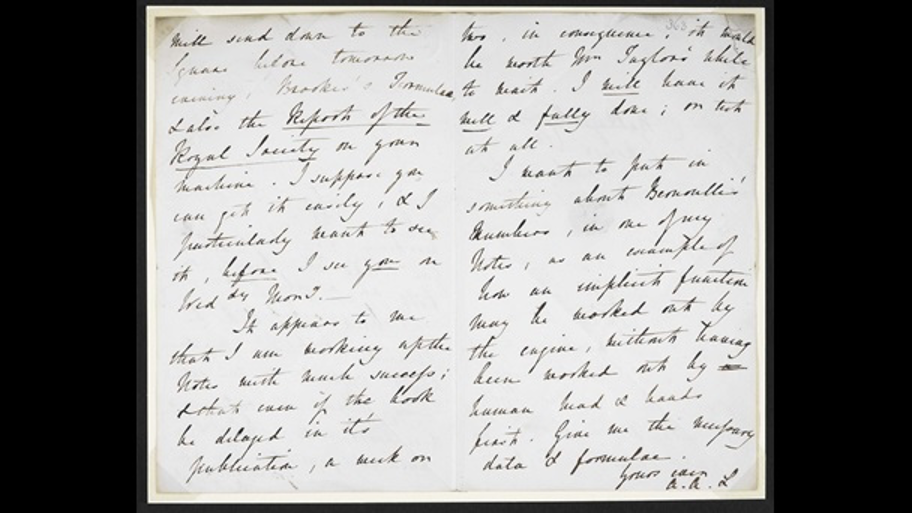 will send down to the
Square before tomorrow
evening, Brooke's Formulae,
& also the Report of the
Royal Society on your
machine. I suppose you
can get it easily, & I
particularly want to see
it, before I see you on
Wed dy Morng.—
It appears to me
that I am working up the
Notes with much success;
& that even if the book
be delayed in it's
publication, a week or
two, in consequence, it would
be worth Mr Taylor's while
to wait. I will have it
well & fully done; or not
at all.
I want to put in
something about Bernoulli's
Numbers, in one of my
Notes, as an example of
how an implicit function
may be worked out by
the engine, without having
been worked out by
human head & hands
first. Give me the necessary
data & formulae.
Yours ever
A.A.L